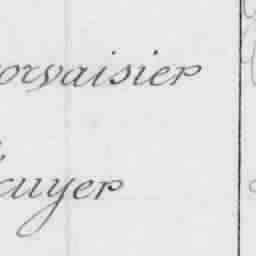 orvaisier
cuyer